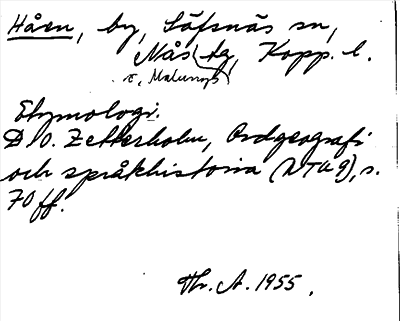 Håen, by, Säfsnäs sn,
Nås hg, Kopp. l.
o. Malungs
Etymologi.
D. O. Zetterholm, Ordgeografi
och språkhistoria (NTU 9), s.
70 ff.
Thr. A. 1955.